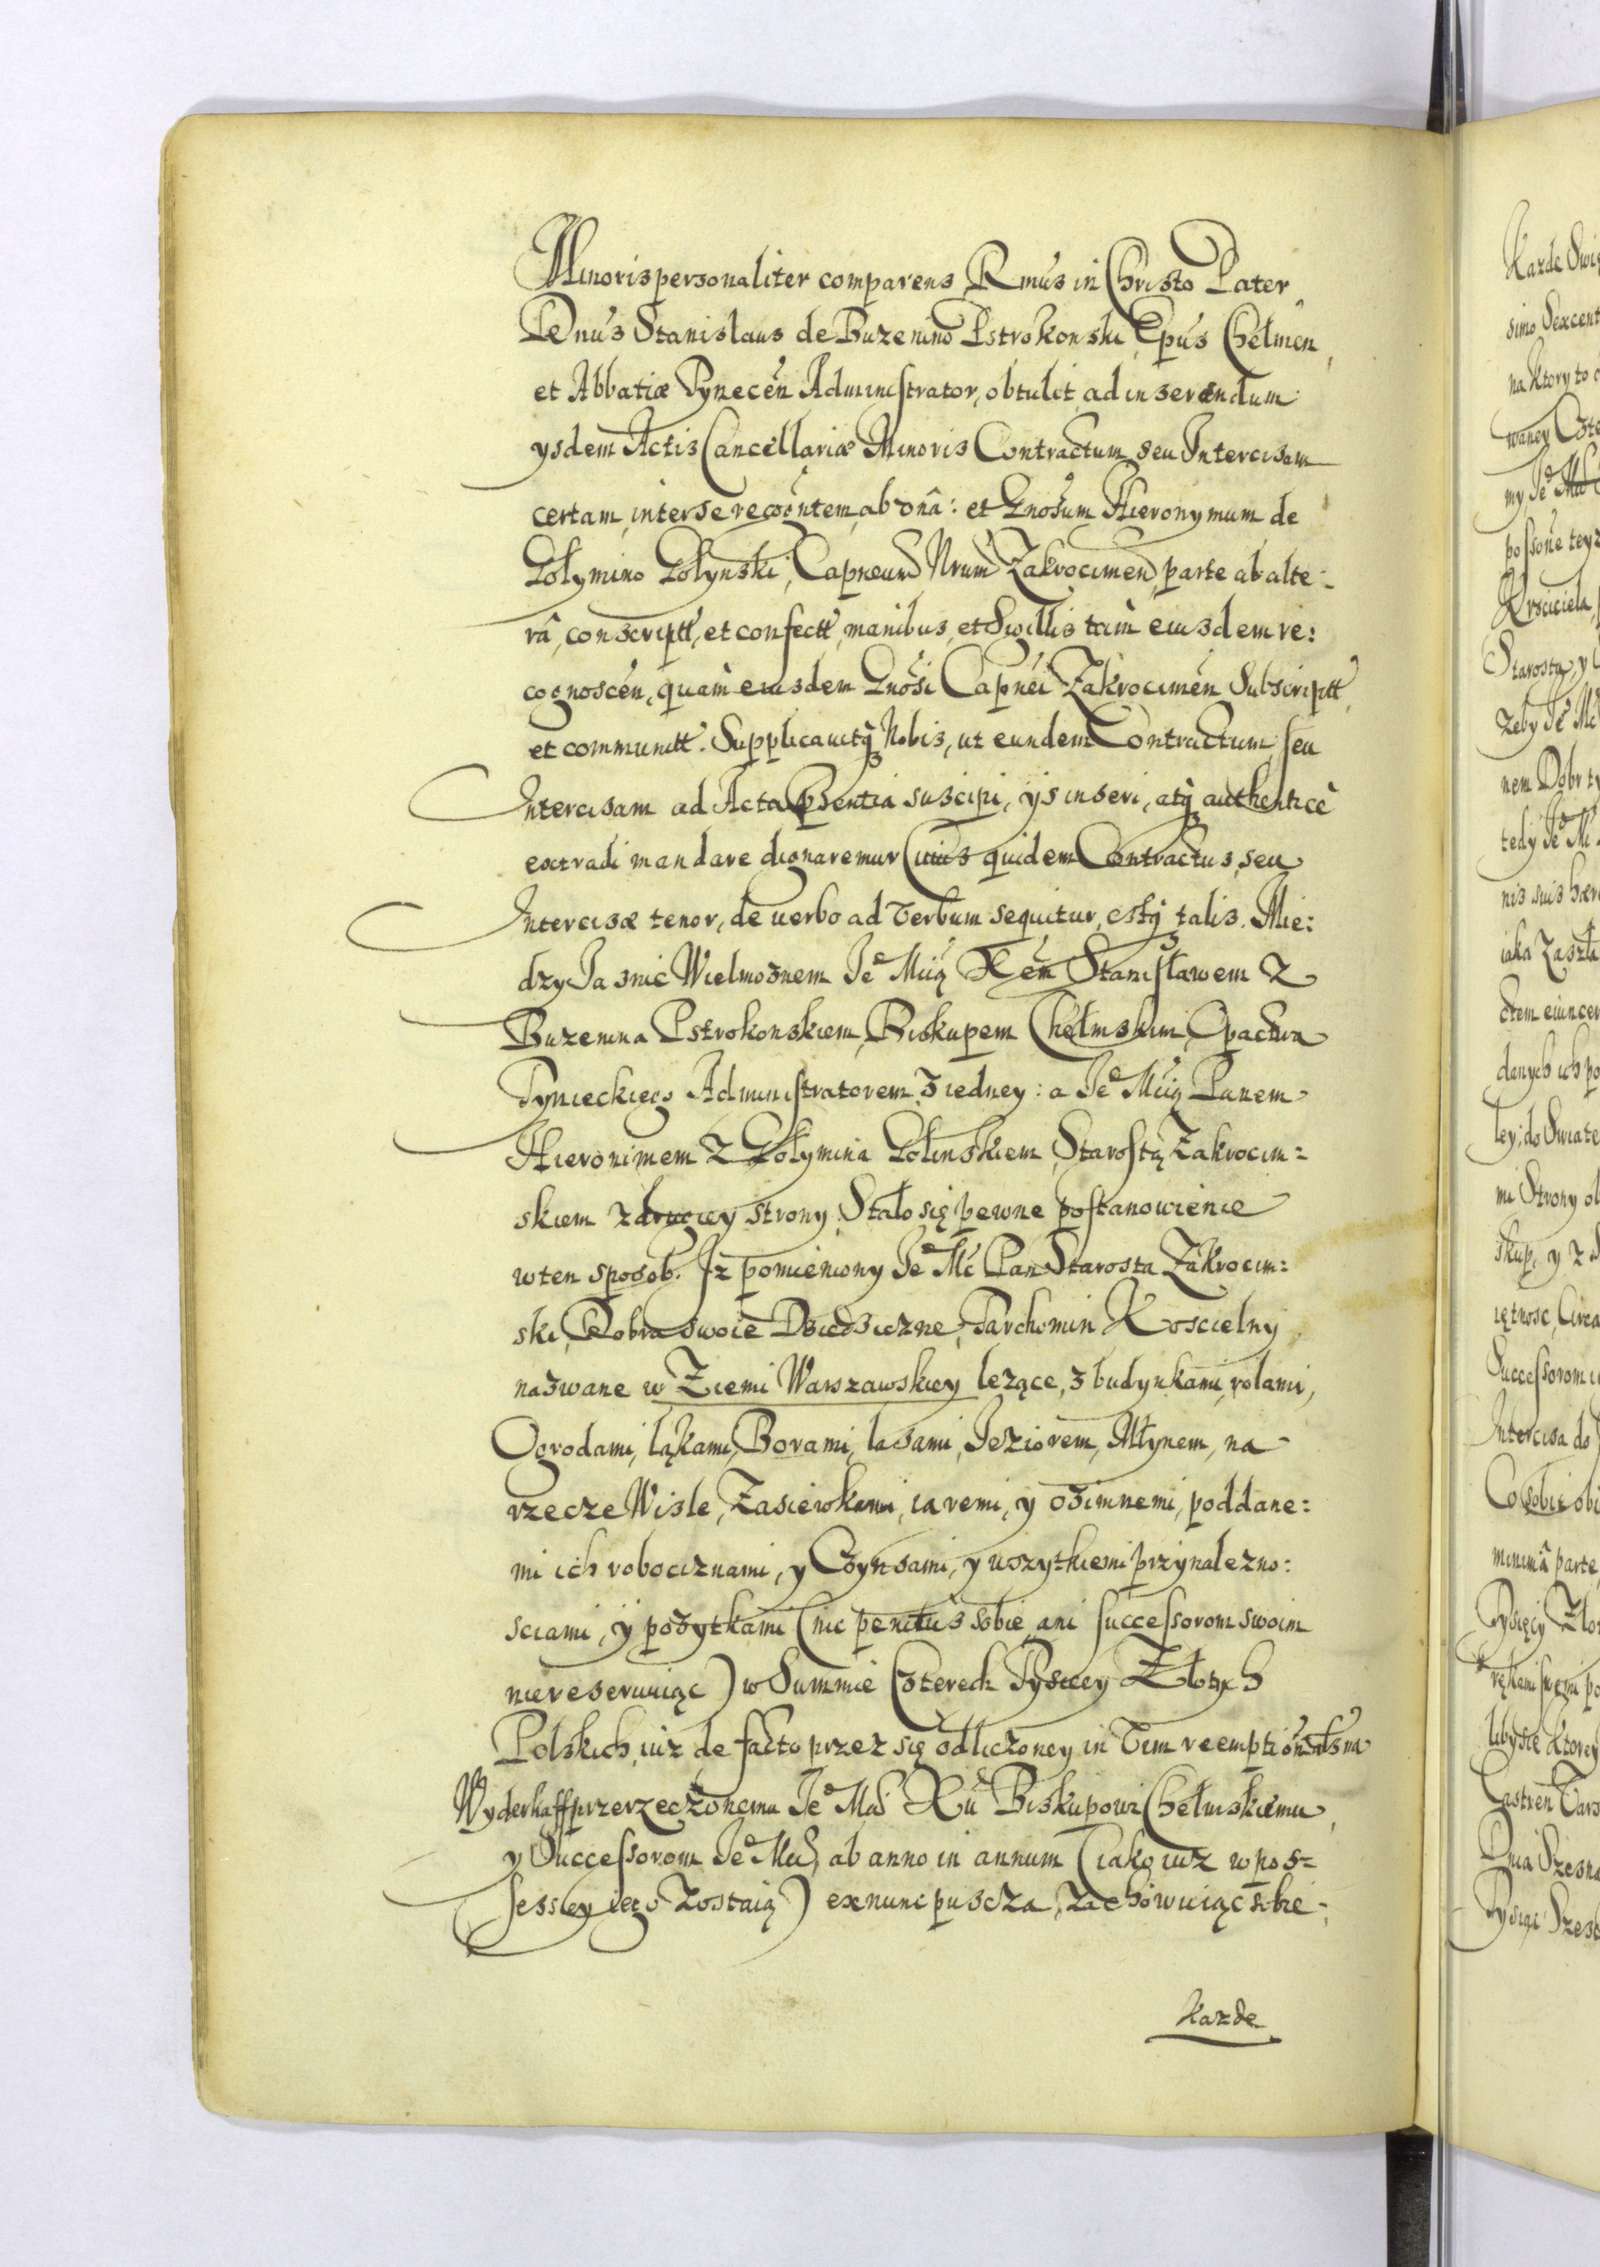 Minoris personaliter comparens Rmus in Christo Pater
Dnus Stanislaus de Buzenino Pstrokonski Epus Chełmen
et Abbatiæ Tynecen Administrator, obtulit ad inserendum
ysdem Actis Cancellariæ Minoris Contractum seu Intercisam
certam, inter se recogntem, ab vnâ: et Gnosum Hieronymum de
Gołymino Gołynski, Capneum Nrum Zakrocimen, parte ab alte:
râ, conscriptt, et confectt, manibus, et Sigillis tam eiusdem re:
cognoscen, quam eiusdem Gnosi Capnei Zakrocimen Subscriptt,
et communitt. Supplicauitq Nobis, ut eundem Contractum, seu
Intercisam ad Acta psentia suscipi, ys inseri, atq authenticè
extradi mandare dignaremur Cuius quidem Contractus, seu
Intercisæ tenor, de uerbo ad verbum sequitur, estq talis. Mie:
dzy Jasnie Wielmoznem Je Mcią Xem Stanisławem Z
Buzenina Pstrokonskiem, Biskupem Chełmskim, Opactwa
Tynieckiego Administratorem, z iedney: a Je Mcią Panem
Hieronimem Z Gołymina Golinskiem, Starostą Zakrocim:
skiem z drugiey strony, Stało się pewne postanowienie
w ten sposob. Iz pomieniony Je Mc Pan Starosta Zakrocim:
ski, Dobra swoie Dziedziczne, Tarchomin Koscielny
nazwane w Ziemi Warszawskiey lezące, z budynkami, rolami,
Ogrodami, łąkami, Borami, lasami, Jeziorem, Młynem, na
rzecze Wisle, Zasiewkami, iaremi, y ozimnemi, poddane:
mi ich robociznami, y Czynsami, y wszytkiemi przynalezno:
sciami, y pozytkami (nic penitus sobie ani successorom swoim
niereserwuiąc) w Summie Czterech Tysięcy Złotych
Polskich, iuz de facto przez się odliczoney, in vim reemptionis als na
Wyderkaff przerzeczonemu Je Mci Xu Biskupowi Chełmskiemu,
y Successorom Je Mci, ab anno in annum (iako iuz w pos:
sessiey iego Zostaią) exnunc puscza, zachowuiąc sobie
kazde